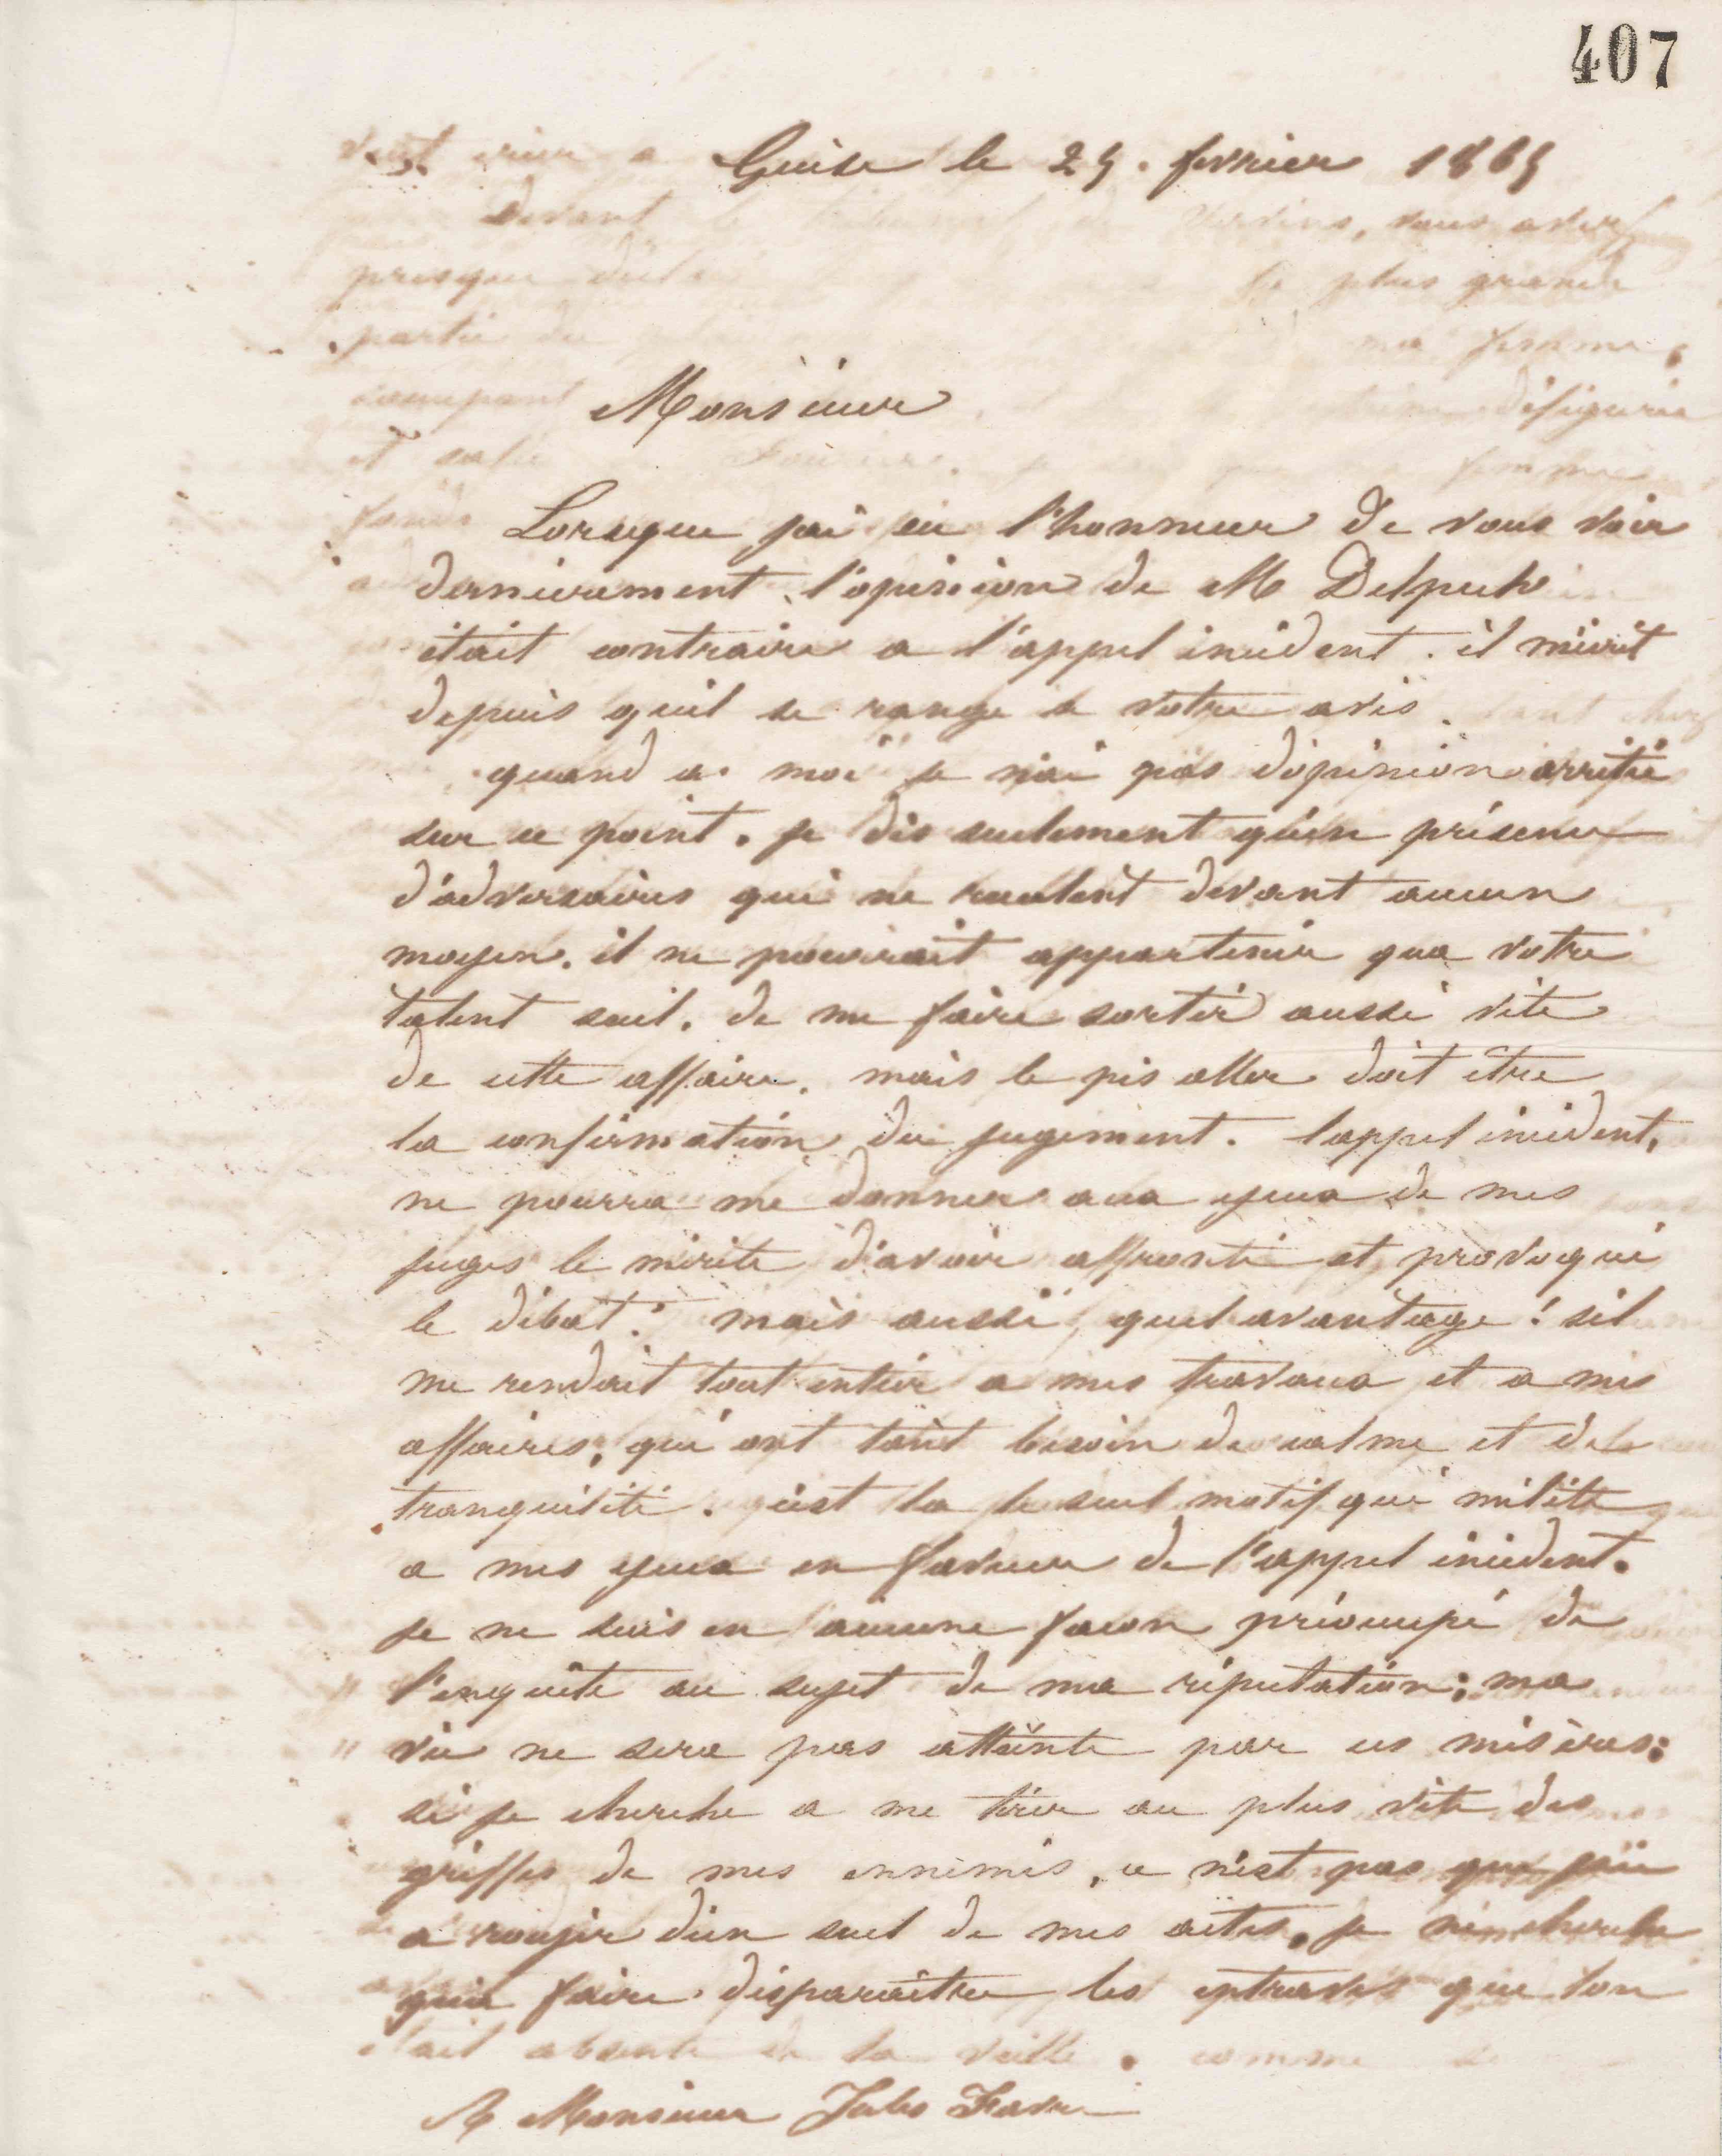 407
Guise le 25. fevrier 1865
Monsieur
Lorsque jai eu l'honneur de vous voir
dernierement, l'opinion de M Delpech
était contraire a l'appel incident. il m'écrit
depuis quil se range a votre avis.
quand a moi je n'ai pas d'opinion arrêtée
sur ce point. je dis seulement qu'en présence
d'adversaires qui ne reculent devant aucun
moyen. il ne pourrait appartenir qua votre
talent seul. de me faire sortir aussi vite
de cette affaire. mais le pis aller doit être
la confirmation du jugement. lappel incident,
ne pourra me donner aux yeux de mes
juges le mérite d'avoir affronté et provoqué
le débat: mais aussi quel avantage! sil
me rendait tout entier a mes travaux et a mes
affaires, qui ont tant besoin de calme et de
tranquilité. c'est la le seul motif qui milite
a mes yeux en faveur de l'appel incident.
je ne suis en aucune facon préoccupé de
l'enquête au sujet de ma réputation; ma
vie ne sera pas atteinte par ces misères:
si je cherche a me tirer au plus vite des
griffes de mes ennemis, ce n'est pas que j'aie
a rougir d'un seul de mes actes. je ne cherche
qu'a faire disparaître les entraves que lon
A Monsieur Jules Favre